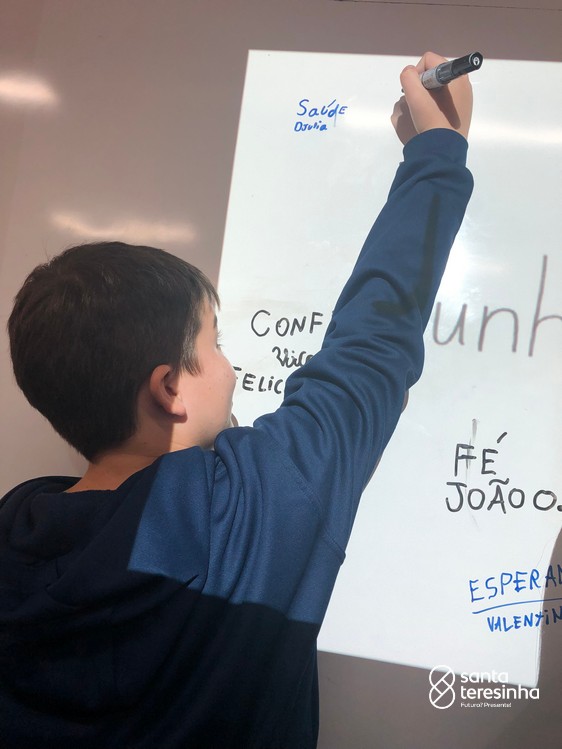 Saúde
Djulia
CONF
unh
FELIC
FÉ
JOÃO O.
ESPERAN
VALENTIN
santa
teresinha
Futuro? Presente!